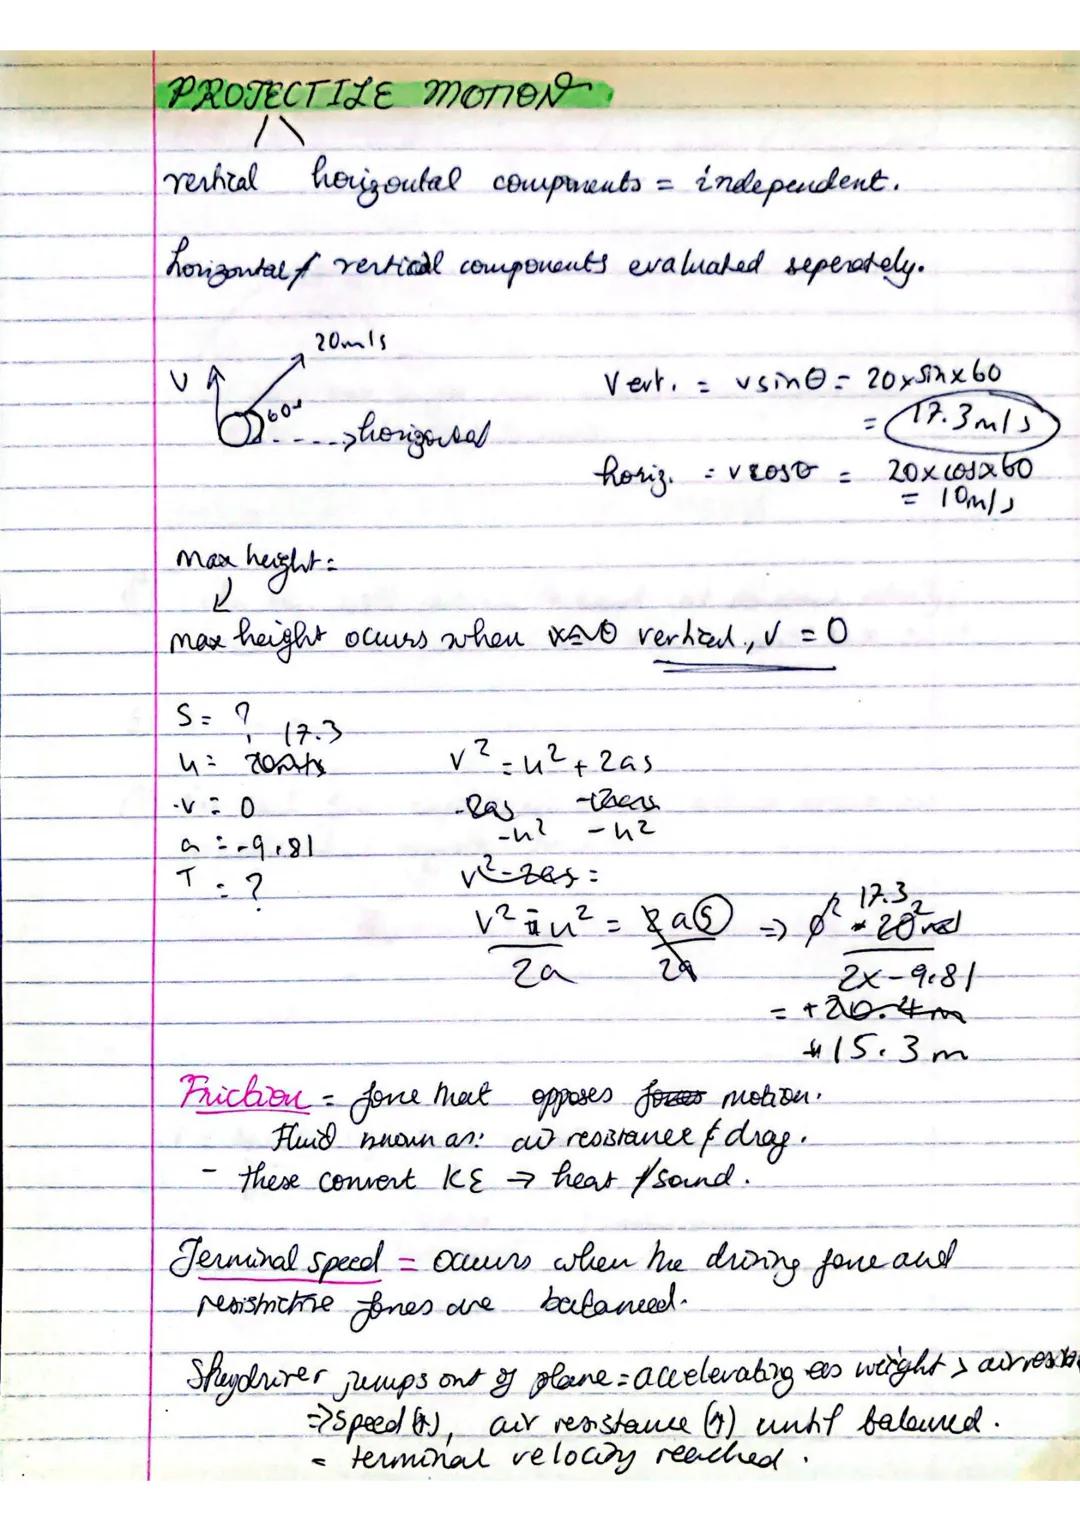 PROJECTILE MOTION
vertical horizontal components = independent.
horizontal & vertical components evaluated seperately.
20m/s
V
60°
horizontal
Vert. = vsinθ = 20×sin×60
= 17.3m/s
horiz. = vcosθ = 20×cos×60
= 10m/s
max height =
max height occurs when vertical, v = 0
S = ?
17.3
u =
v = 0
a = -9.81
T = ?
v² = u² + 2as
-2as
-u² -u²
v²-2as =
v² - u² = 2as => 0² - 17.3²
2a 2a 2×-9.81
= +20.4m
15.3m
Friction = force that opposes forces motion.
Fluid known as: air resistance & drag.
- these convert KE → heat / sound.
Terminal speed = occurs when the driving force and
resistictive forces are balanced.
Skydriver jumps out of plane = accelerating as weight > air
=> speed (↑), air resistance (↑) until balanced.
= terminal velocity reached.